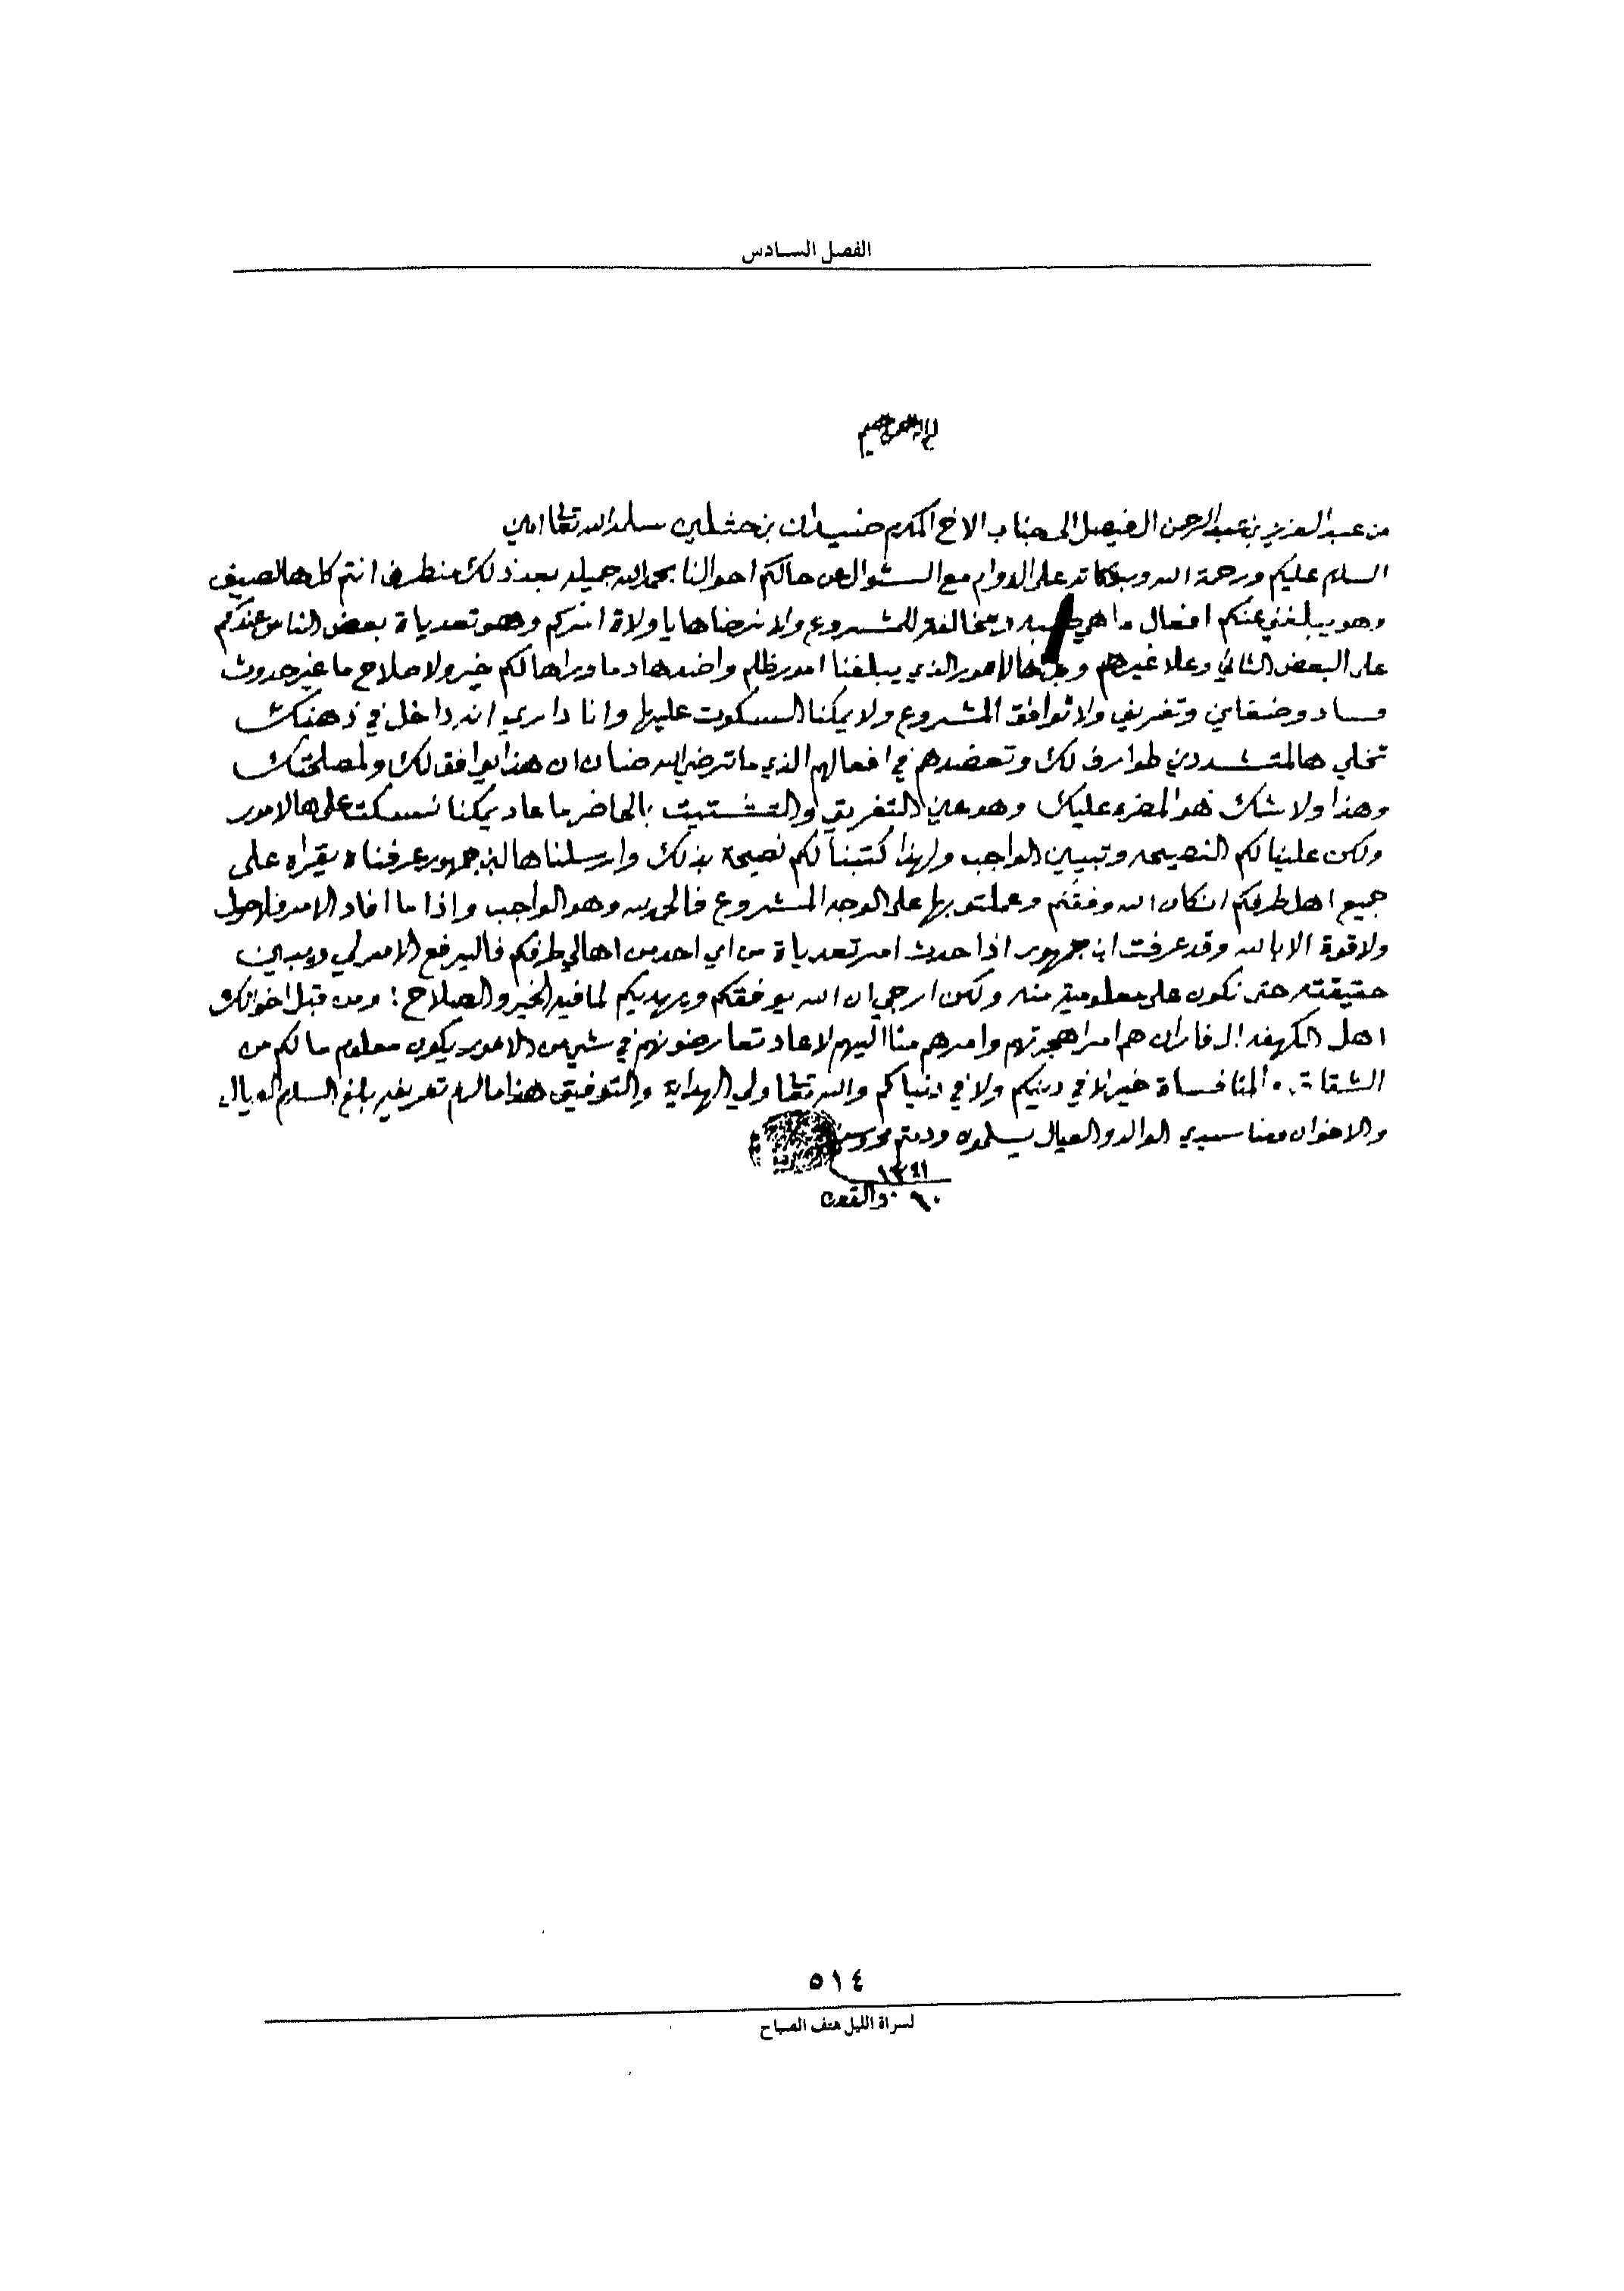 الفصل السادس
من عبد العزيز بن عبد الرحمن الفيصل الى جناب الاخ المكرم ضيدان بن حثلين سلمه الله تعالى امين
السلام عليكم ورحمة الله وبركاته على الدوام مع السئوال عن حالكم احوالنا بحمد الله جميله بعد ذلك منطرف انتم كل هالصيف
وهو يبلغني عنكم افعال ما هي مخالفه للمشروع ولا نرضاها يا ولاة امركم وهو تعدياة بعض الناس عندكم
على البعض الثاني وعلا غيرهم هالامور الذي يبلغنا امور ظلم خير ولا صلاح ما غير حدوث
فساد وضغاين وتفريق ولا توافق المشروع ولا يمكنا السكوت عليها وانا داري انه داخل في ذهنك
تخلي هالمتشددين طوارف لك وتعضدهم في افعالهم الذي ما ترضي الله ان هذا يوافق لك ولمصلحتك
وهذا ولا شك هو المضره عليك وهو عين التفريق والتشتيت بالحاضر ما عاد يمكنا نسكت على هالامور
ولكن علينا لكم النصيحه وتبيين الواجب ولهذا كتبنا لكم نصيحة بذلك وارسلناها لابن جمهور عرفناه يقراه على
جميع اهل طرفكم انكان الله وفقتم وعملتو بها على الوجه المشروع فالحمد لله وهو الواجب واذا ما افاد الامر فلا حول
ولا قوة الا بالله وقد عرفت ابن جمهور اذا حدث امر تعدياة من اي احد من اهالي طرفكم فاليرفع الامر لي ويبين
حقيقته حتى نكون على معلومية منه ولكن ارجي ان الله يوفقكم ويهديكم لما فيه الخير والصلاح ؛ ومن قبل اخوانكم
اهل الكهفه هم امر هجرتهم وامرهم منا اليهم لا عاد تعارضونهم في شي من الامور يكون معلوم ما لكم من
الشقاق والمنافساة خير لا في دينكم ولا في دنياكم والله تعالى ولي الهداية والتوفيق هذا ما لزم تعريفه بلغ السلام العيال
والاخوان ومنا سيدي الوالد والعيال يسلمون ودمتم محروسين
١٣٤١
القعده
٥١٤
لسراة الليل هتف الصباح